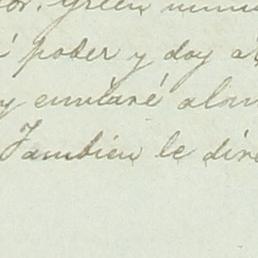 Green
poder y doy a
y enviaré
Tambien le dire